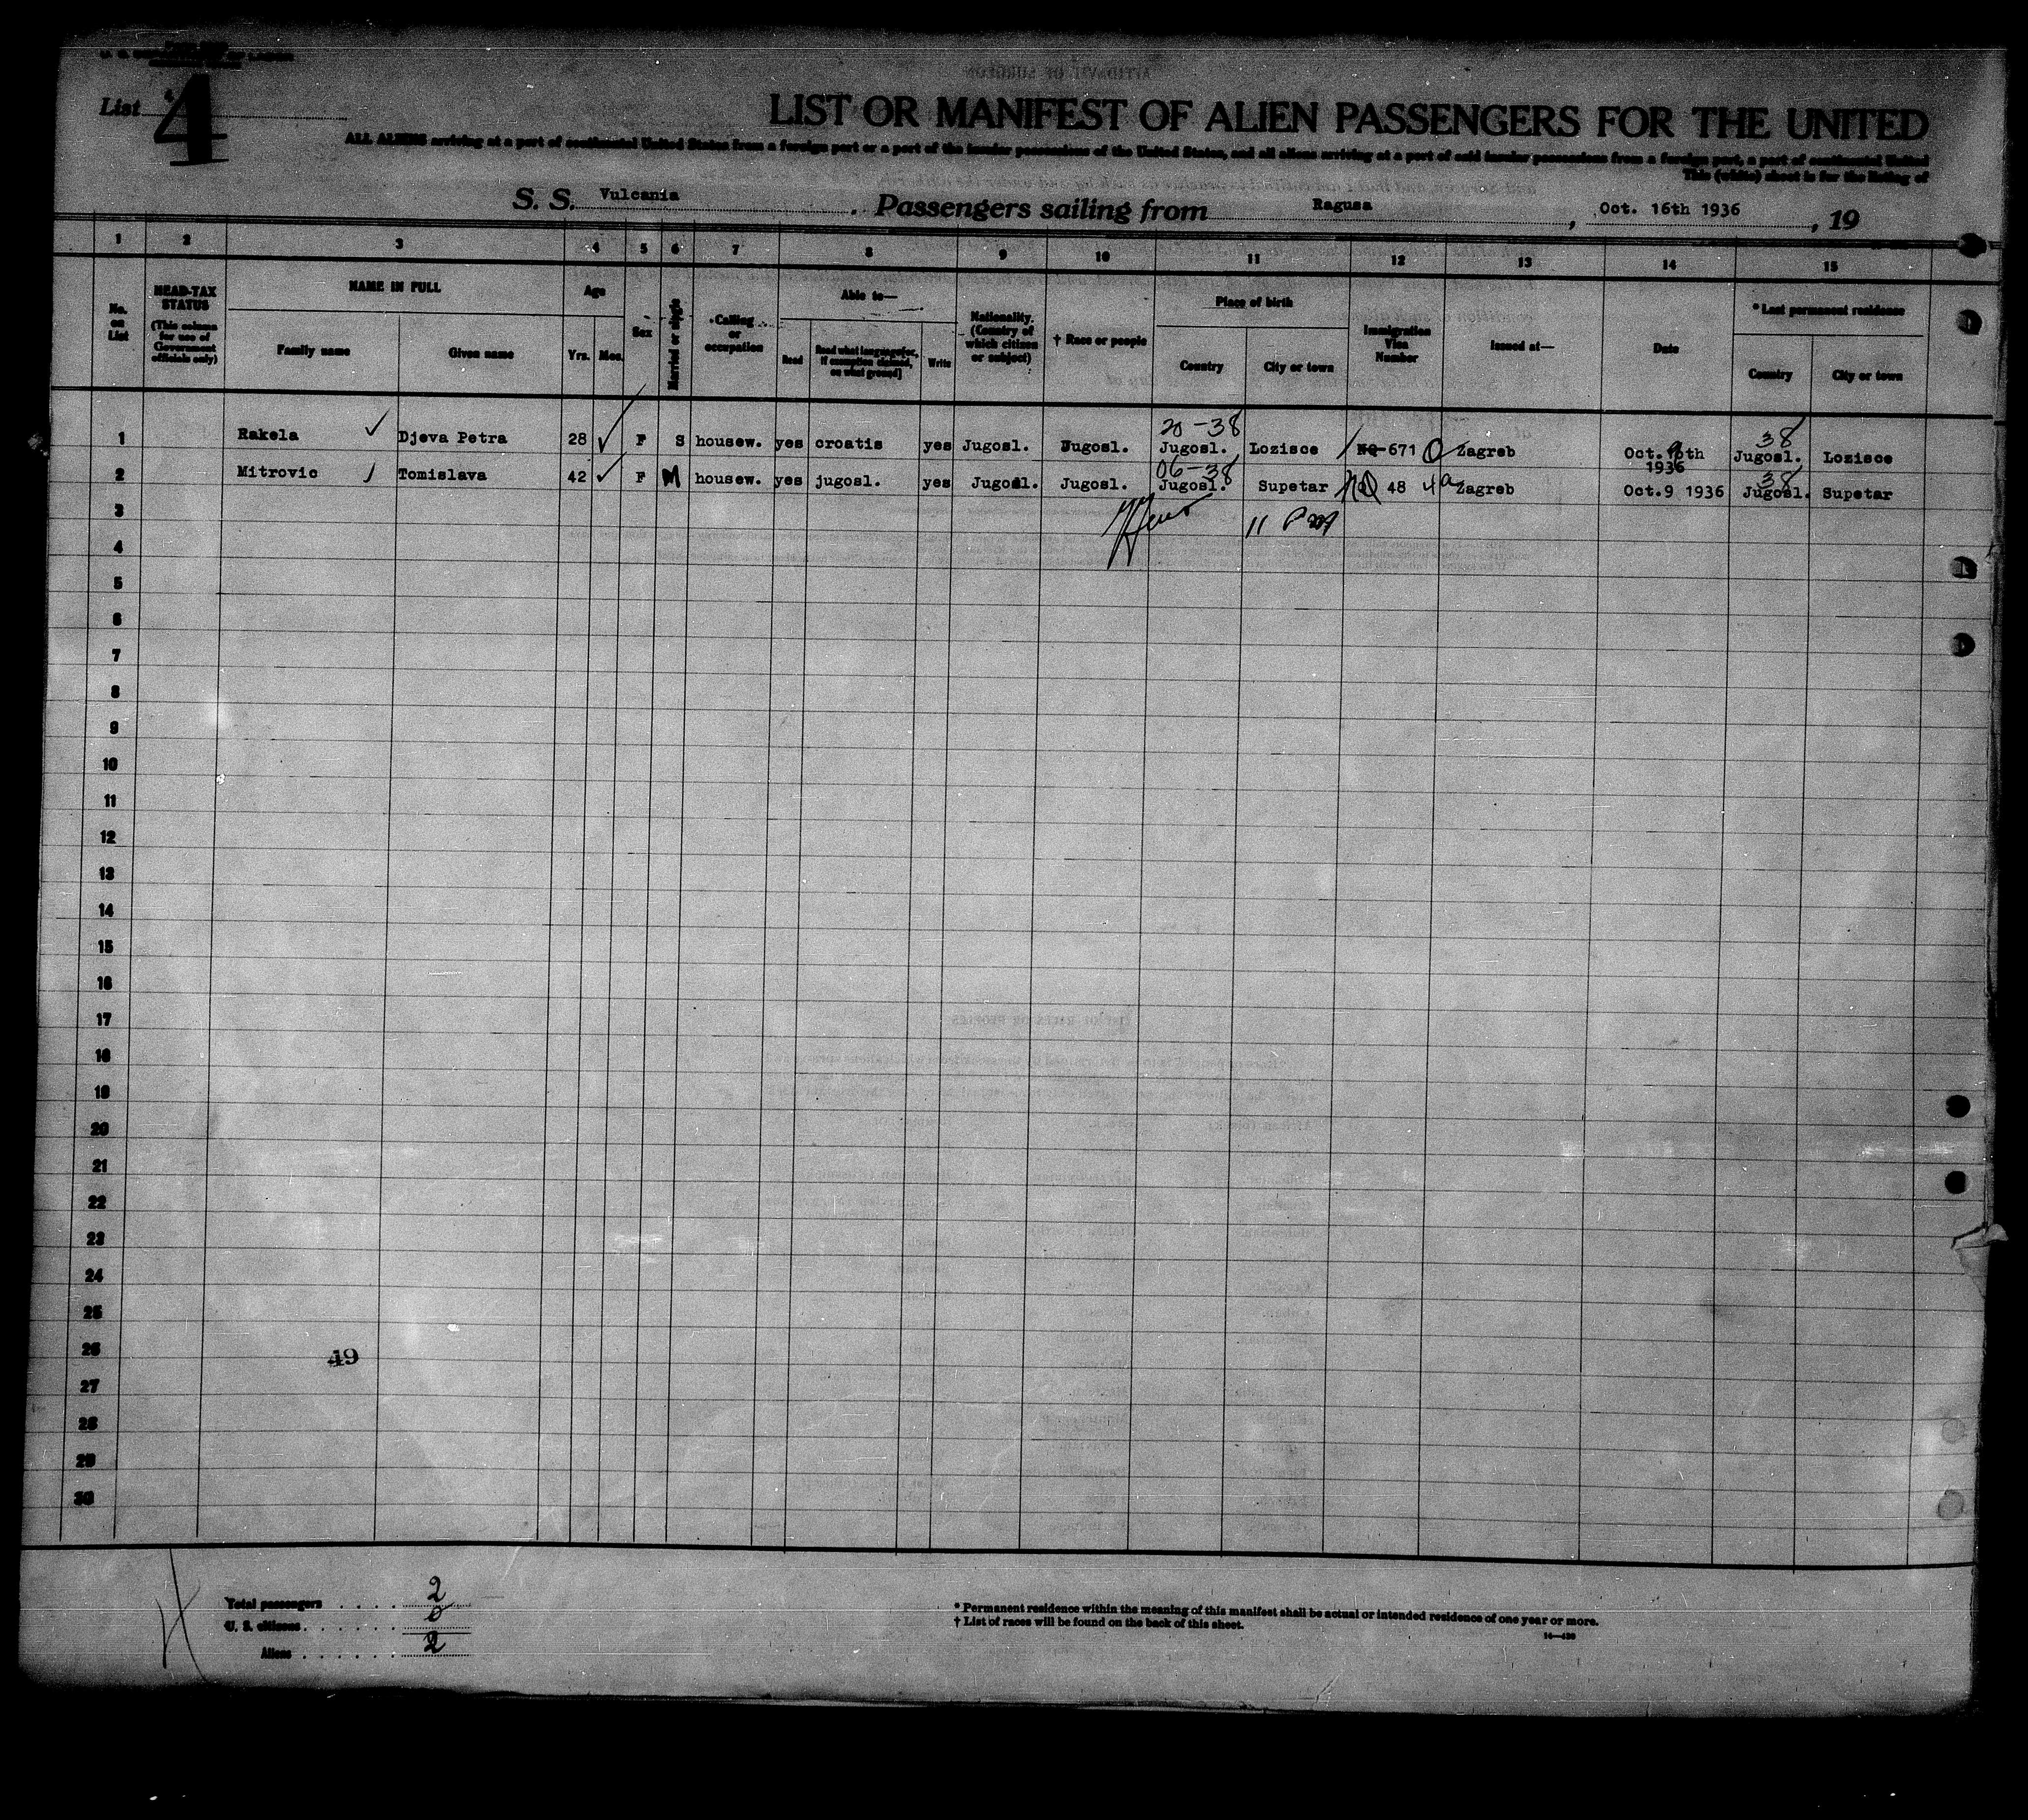 List 4
LIST OR MANIFEST OF ALIEN PASSENGERS FOR THE UNITED
ALL ALIENS arriving at a port of continental United States from a foreign port or a port of the insular possessions of the United States, and all aliens arriving at a port of said insular possessions from a foreign port, a port of continental United
This (white) sheet is for the listing of
S. S. Vulcania . Passengers sailing from Ragusa , Oct. 16th 1936 , 19
1 2 3 4 5 6 7 8 9 10 11 12 13 14 15
No. on List
HEAD-TAX STATUS
(This column for use of Government officials only)
NAME IN FULL
Family name Given name
Age
Yrs. Mos.
Sex
Married or single
Calling or occupation
Able to—
Read Read what language [or, if exemption claimed, on what ground] Write
Nationality. (Country of which citizen or subject)
† Race or people
Place of birth
Country City or town
Immigration Visa Number
Issued at—
Date
* Last permanent residence
Country City or town
20-38 38
1 Rakela Djeva Petra 28 F S housew. yes croatis yes Jugosl. Jugosl. Jugosl. Lozisce NQ-671 Zagreb Oct. 9th 1936 Jugosl. Lozisce
06-38 38
2 Mitrovic Tomislava 42 F M housew. yes jugosl. yes Jugosl. Jugosl. Jugosl. Supetar 48 Zagreb Oct.9 1936 Jugosl. Supetar
3
11
4
5
6
7
8
9
10
11
12
13
14
15
16
17
18
19
20
21
22
23
24
25
26
49
27
28
29
30
Total passengers . . . . 2
U. S. citizens . . . . . . 0
Aliens . . . . . . 2
* Permanent residence within the meaning of this manifest shall be actual or intended residence of one year or more.
† List of races will be found on the back of this sheet.